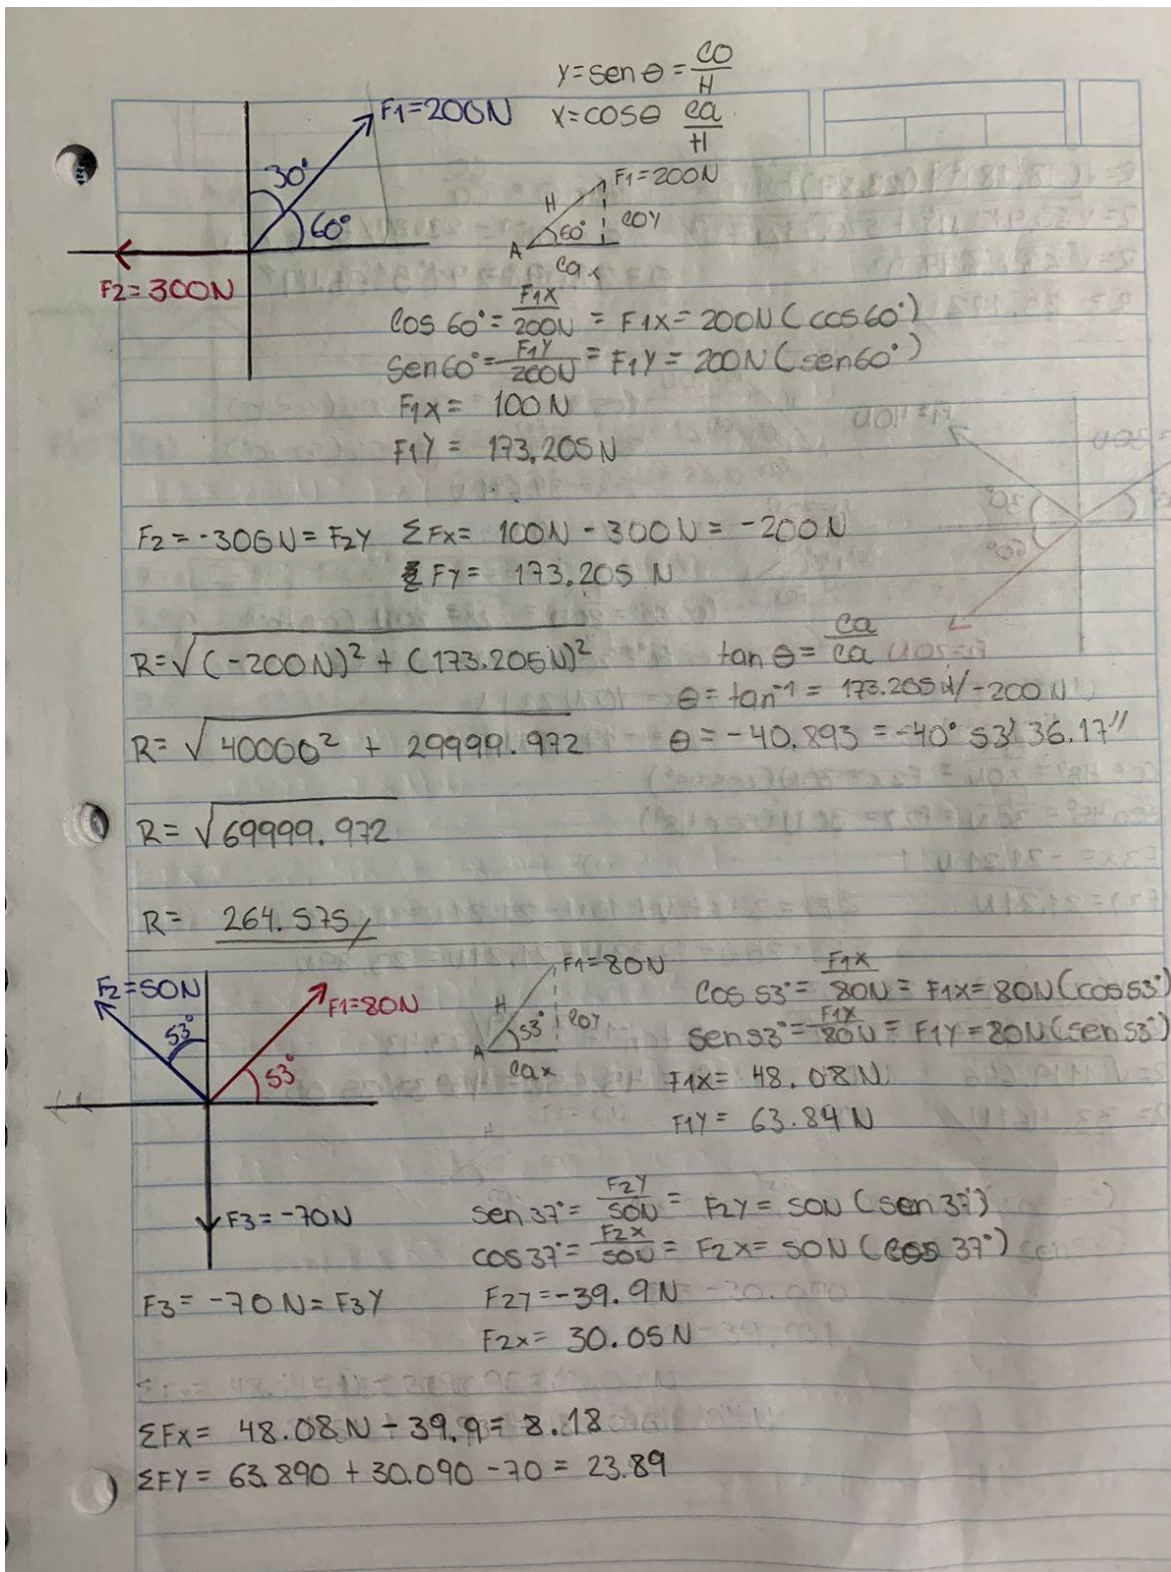 y=sen θ = CO/H
x=cosθ ca/H
F1=200N
30°
60°
F2=300N
F1=200N
H
60°
COY
A
Cax
Cos 60°= F1X/200N = F1X= 200N (cos60°)
Sen60°= F1Y/200N = F1Y = 200N (sen60°)
F1X= 100N
F1Y = 173.205N
F2 = -300N = F2Y ΣFx= 100N - 300N = -200N
ΣFy= 173.205 N
R=√(-200N)² + (173.205N)²
tan θ= ca/ca
θ = tan⁻¹ = 173.205N/-200N
R= √40000² + 29999.972
θ = -40.893 = -40° 53' 36.17"
R= √69999.972
R= 264.575
F2=50N
53°
F1=80N
53°
F1=80N
H
53°
COY
A
Cax
Cos 53°= F1X/80N = F1X= 80N(cos53°)
sen53°= F1X/80N = F1Y = 80N(sen53°)
F1X= 48.08N
F1Y= 63.89N
F3=-70N
sen37°= F2Y/50N = F2Y= 50N (sen37°)
cos37°= F2X/50N = F2X= 50N (cos 37°)
F3= -70N= F3Y
F2Y=-39.9N
F2x= 30.05N
ΣFx= 48.08N - 39.9= 8.18
ΣFY= 63.890 + 30.090 -70 = 23.89